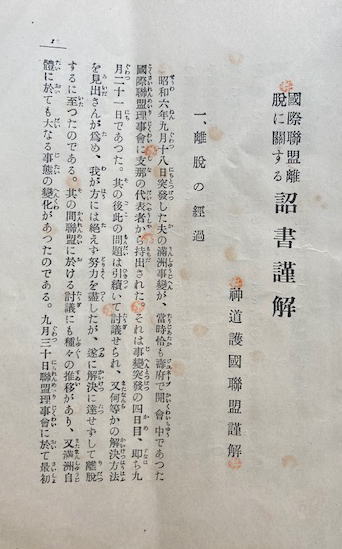 國際聯盟離
脫に關する
詔書謹解
神道護國聯盟謹解
一、離脫の經過
昭和六年九月十八日突發した夫の滿洲事變が、當時恰も壽府で開會中であつた
國際聯盟理事會に支那の代表者から持出された。それは事變突發の四日目、卽ち九
月二十一日であつた。其の後此の問題は引續いて討議せられ、又何等かの解決方法
を見出さんが爲め、我が方には絕えず努力を盡したが、遂に解決に達せずして離脫
するに至つたのである。其の間聯盟に於ける討議にも種々の推移があり、又滿洲自
體に於ても大なる事態の變化があつたのである。九月三十日聯盟理事會に於て最初